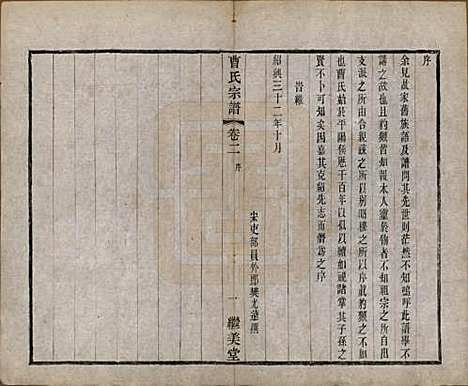 序
余見故家舊族語及譜問其先世則茫然不知嗚呼此譜學不
講之故也且豺獺皆知報本人靈於物者不知祖宗之所自出
支派之所由合親疎之所以別昭穆之所以分是豺獺之不若
也曹氏始於平陽侯歷千百年以似以續如視諸掌其子孫之
賢不可及因嘉其克紹先志而僭為之序
旹維
紹興三十二年十月
宋吏部員外郎樊光遠撰
曹氏宗譜
卷二
序
一
繼美堂